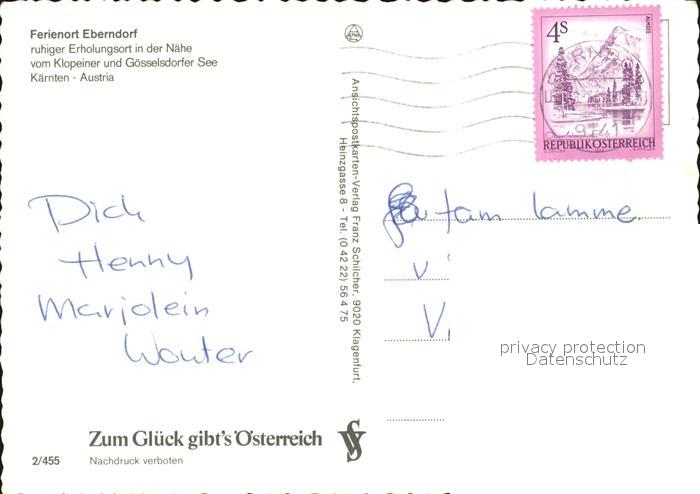 Ferienort Eberndorf
ruhiger Erholungsort in der Nähe
vom Klopeiner und Gösselsdorfer See
Kärnten - Austria
Ansichtspostkarten-Verlag Franz Schilcher, 9020 Klagenfurt,
Heinzgasse 8 - Tel. (0 42 22) 56 4 75
4s
ALMSEE
9141
REPUBLIK ÖSTERREICH
Dich
Henny
Marjolein
Wouter
fam lamme
V
V.
privacy protection
Datenschutz
Zum Glück gibt's Österreich
2/455
Nachdruck verboten